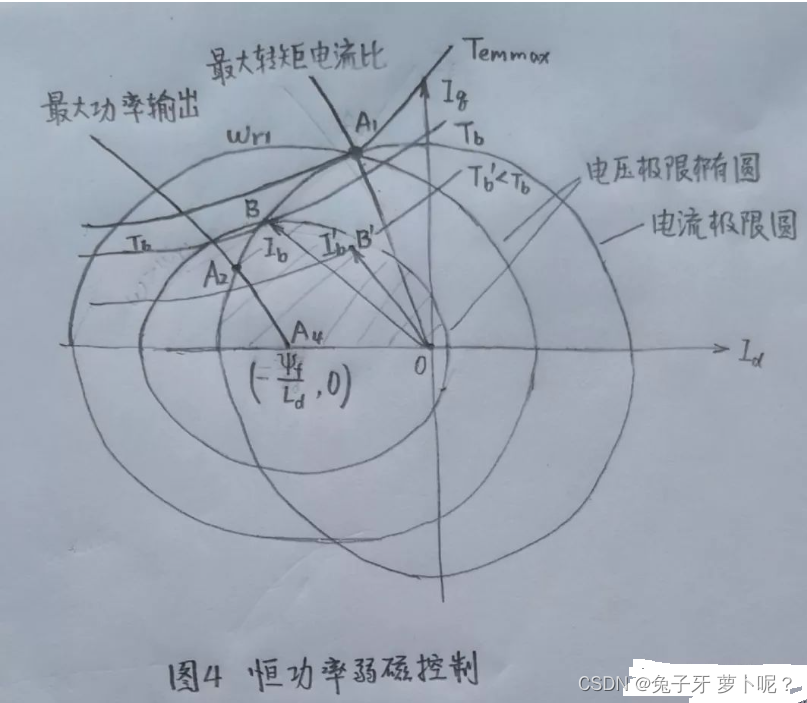 最大转矩电流比
Temmax
最大功率输出
Iq
Wr1
A1
Tb
Tb'<Tb
电压极限椭圆
电流极限圆
B
Tb
Ib
Ib'
B'
A2
A4
(-Ψf/Ld,0)
O
Id
图4 恒功率弱磁控制
CSDN @兔子牙 萝卜呢？